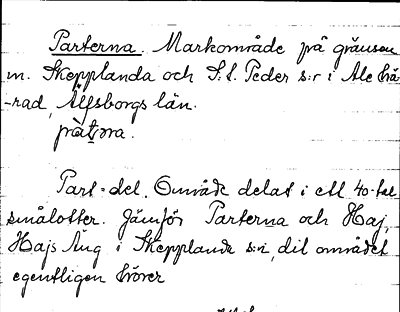 Parterna. Markområde på gränsen
m. Skepplanda och S:t Peder s:r i Ale hä-
-rad, Älfsborgs län.
pàtɔra.
Part = del. Område delat i ett 40-tal
små lotter. Jämför Parterna och Haj,
Hajs Äng i Skepplanda s:n, dit området
egentligen hörer